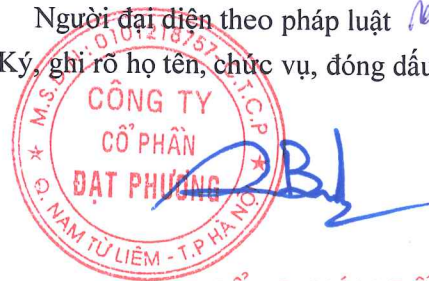 Người đại diện theo pháp luật
Ký, ghi rõ họ tên, chức vụ, đóng dấu
M.S.D.N: 0101218757 - C.T.C.P
CÔNG TY
CỔ PHẦN
ĐẠT PHƯƠNG
Q. NAM TỪ LIÊM - T.P HÀ NỘI